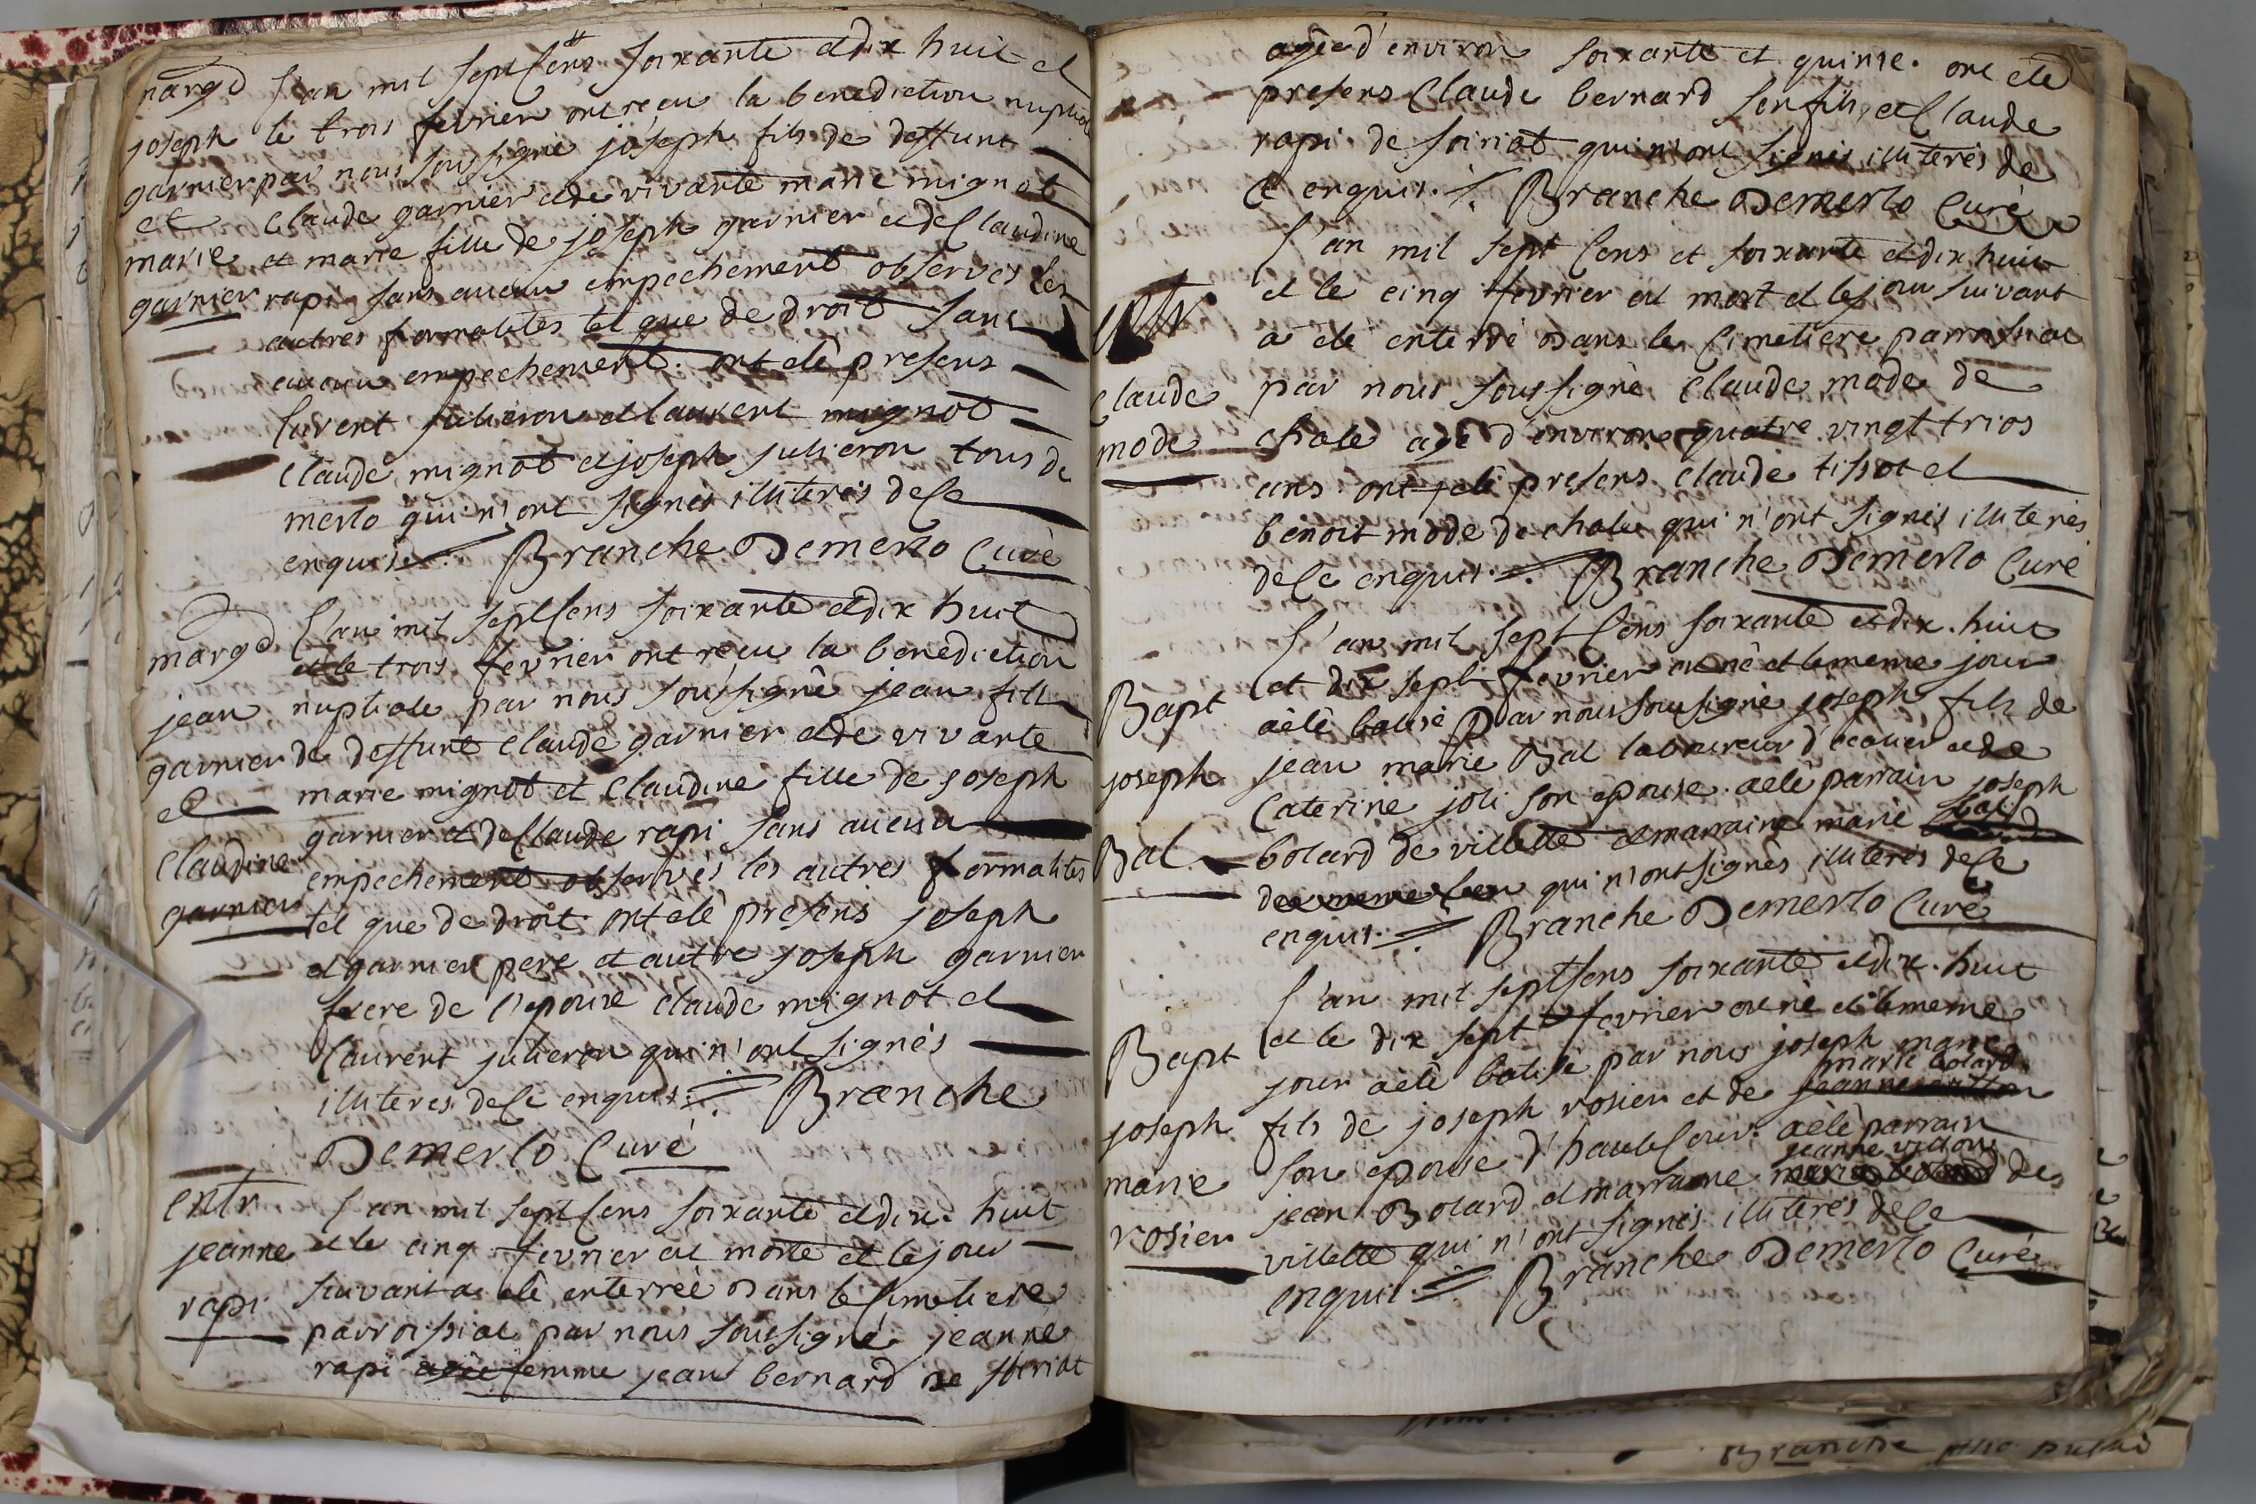 marge
joseph
garnier
et
marie
garnier
l'an mil sept cens soixante et dix huit et
le trois fevrier ont recu la benediction nuptiale
par nous soussigné joseph fils de deffunt
claude garnier et de vivante marie mignot
et marie fille de joseph garnier et de claudine
rapi sans aucun empechement observés les
autres formalites tel que de droit sans
aucun empechement. ont eté presens
lurent julieron et laurent mignot
claude mignot et joseph julieron tous de
merlo qui n'ont signés illiterés de ce
enquis. Branche Demerlo Curé
marge
jean
garnier
et
claudine
garnier
l'an mil sept cens soixante et dix huit
et le trois fevrier ont recu la benediction
nuptiale par nous sousigné jean fils
de deffunt claude garnier et de vivante
marie mignot et claudine fille de joseph
garnier et de claude rapi sans aucun
empechement observés les autres formalites
tel que de droit ont eté presens joseph
et garnier pere et autre joseph garnier
frere de l'epouse claude mignot et
laurent julieron qui n'ont signés
illiteres de ce enquis. Branche
Demerlo Curé
entr
jeanne
rapi
l'an mil sept cens soixante et dix. huit
et le cinq fevrier est morte et le jour
suivant a eté enterreé dans le cimetiere
parroissial par nous soussigné jeanne
rapi ageé femme jean bernard de soiriat
ageé d'environ soixante et quinse. ont eté
presens claude bernard son fils, et claude
rapi de soiriat qui n'ont signés illiterés de
ce enquis. Branche Demerlo Curé
entr
claude
mode
l'an mil sept cens et soixante et dix huit
et le cinq fevrier est mort et le jour suivant
a eté enterré dans le cimetiere parroissial
par nous soussigné claude mode de
chale agé d'environ quatre vingt trios
ans ont eté presens claude tissot et
benoit mode de chale qui n'ont signés illiterés
de ce enquis. Branche Demerlo Curé
Bapt
joseph
Bal
l'an mil sept cens soixante et dix. huit
et dix sept fevrier est né et le meme jour
a eté batisé Par nous sousigné joseph fils de
jean marie Bal laboureur d'ecolier et de
Caterine joli son epouse. a eté parrain joseph
bolard de villette et marraine marie bal
de meme lieu qui n'ont signés illiterés de ce
enquis. Branche Demerlo Curé
Bapt
joseph
marie
rosier
l'an mil sept cens soixante et dix. huit
et le dix sept fevrier est né et le meme
jour a eté batisé par nous joseph marie
marie bolard
fils de joseph rosier et de
son epouse d'hautecour. a eté parrain
jeanne
jean Bolard et marraine des
villette qui n'ont signés illiterés de ce
enquis. Branche Demerlo Curé
Branche